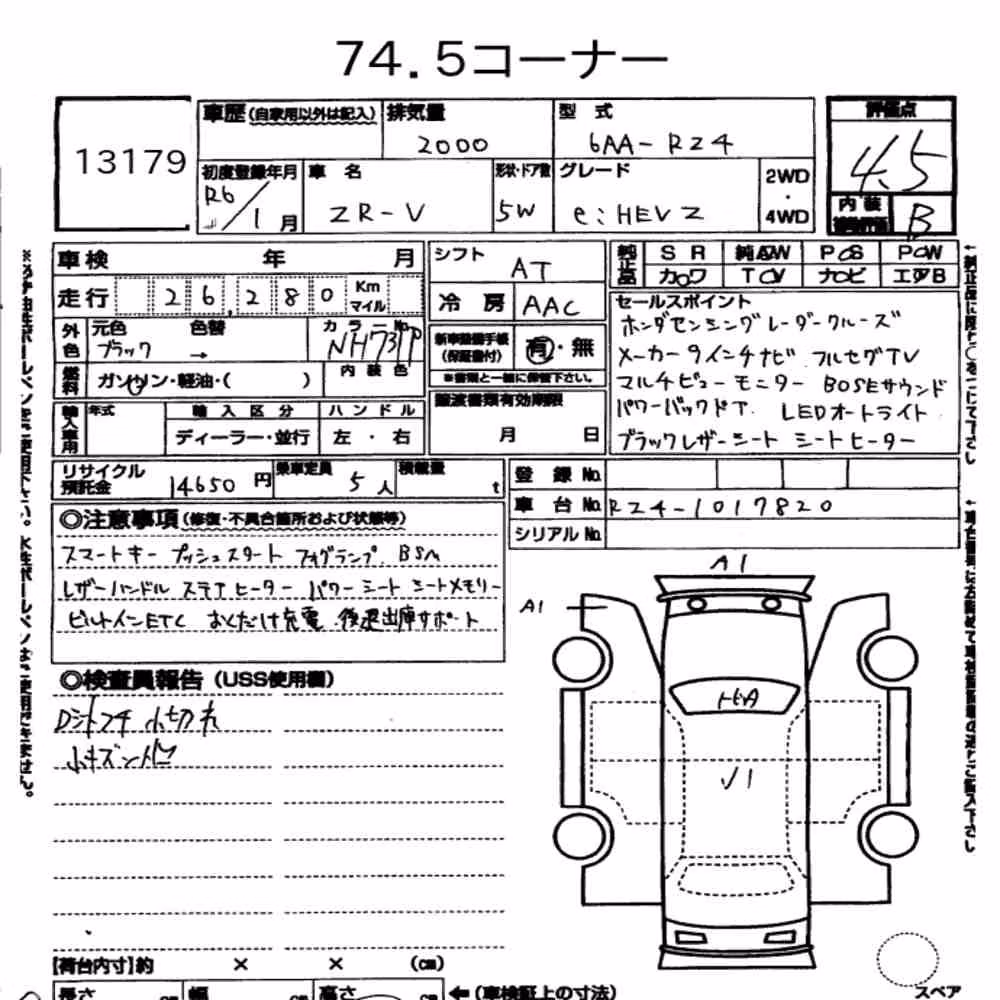 74.5コーナー
13179
車歴(自家用以外は記入) 排気量 2000 型式 6AA-RZ4
評価点 4.5
初度登録年月 R6/1月 車名 ZR-V 形状・ドア数 5W グレード e:HEV Z 2WD・4WD
内装 B
車検 年 月 シフト AT
純正品 SR 純AW PS PW
カワ TV ナビ エアB
走行 26,280 Km マイル 冷房 AAC
外色 元色 ブラック 色替 → カラーNo. NH731P 内装色
新車整備手帳(保証書付) 有・無
※書類と一緒に保管下さい。
燃料 ガソリン・軽油・( )
譲渡書類有効期限 月 日
輸入車用 年式 輸入区分 ハンドル
ディーラー・並行 左・右
セールスポイント
ホンダセンシングレーダークルーズ
メーカー9インチナビ フルセグTV
マルチビューモニター BOSEサウンド
パワーバックドア LEDオートライト
ブラックレザーシート シートヒーター
リサイクル預託金 14650円 乗車定員 5人 積載量 t
登録No.
車台No. RZ4-1017820
シリアルNo.
◎注意事項(修復・不具合箇所および状態等)
スマートキー プッシュスタート フォグランプ BSM
レザーハンドル ステアヒーター パワーシート シートメモリー
ビルトインETC おくだけ充電 後退出庫サポート
◎検査員報告(USS使用欄)
Dシートフチ 小切れ
小キズ
A1
A1
トビA
√1
【荷台内寸】約 × × (cm)
長さ cm 幅 cm 高さ cm ←(車検証上の寸法)
スペア